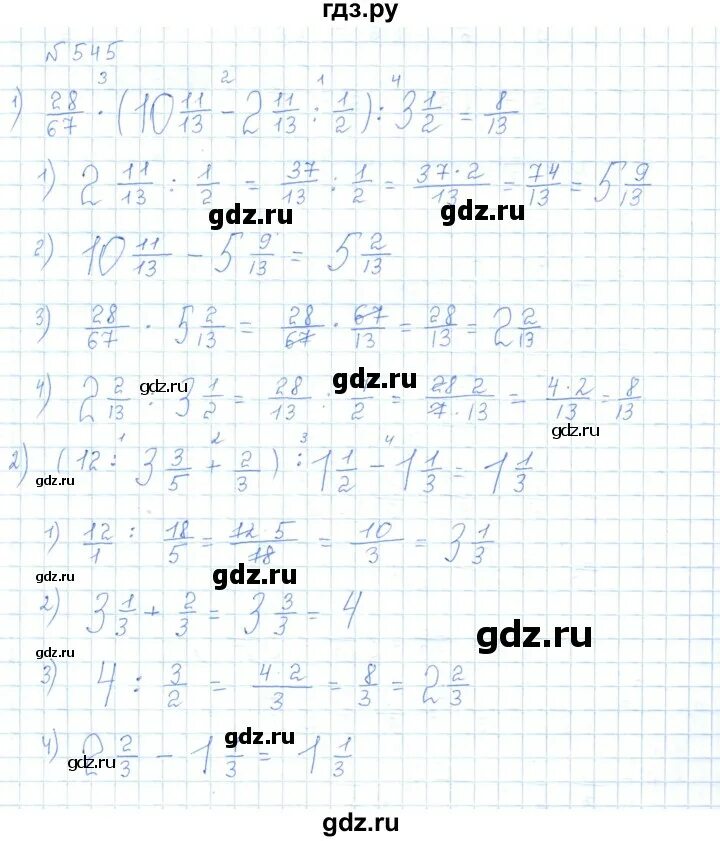 гдз.ру
№ 545
3 2 1 4
1) 28/67 · (10 11/13 - 2 11/13 : 1/2) : 3 1/2 = 8/13
1) 2 11/13 : 1/2 = 37/13 : 1/2 = 37·2/13 = 74/13 = 5 9/13
gdz.ru gdz.ru
2) 10 11/13 - 5 9/13 = 5 2/13
3) 28/67 · 5 2/13 = 28/67 · 67/13 = 28/13 = 2 2/13
gdz.ru gdz.ru
4) 2 2/13 : 3 1/2 = 28/13 : /2 = 28 2/7·13 = 4·2/13 = 8/13
gdz.ru
1 2 3 4
2) (12 : 3 3/5 + 2/3) : 1 1/2 - 1 1/3 = 1 1/3
gdz.ru
1) 12/1 : 18/5 = 12 5/18 = 10/3 = 3 1/3
gdz.ru gdz.ru
2) 3 1/3 + 2/3 = 3 3/3 = 4
gdz.ru gdz.ru
3) 4 : 3/2 = 4·2/3 = 8/3 = 2 2/3
gdz.ru
4) 2 2/3 - 1 1/3 = 1 1/3
gdz.ru
gdz.ru